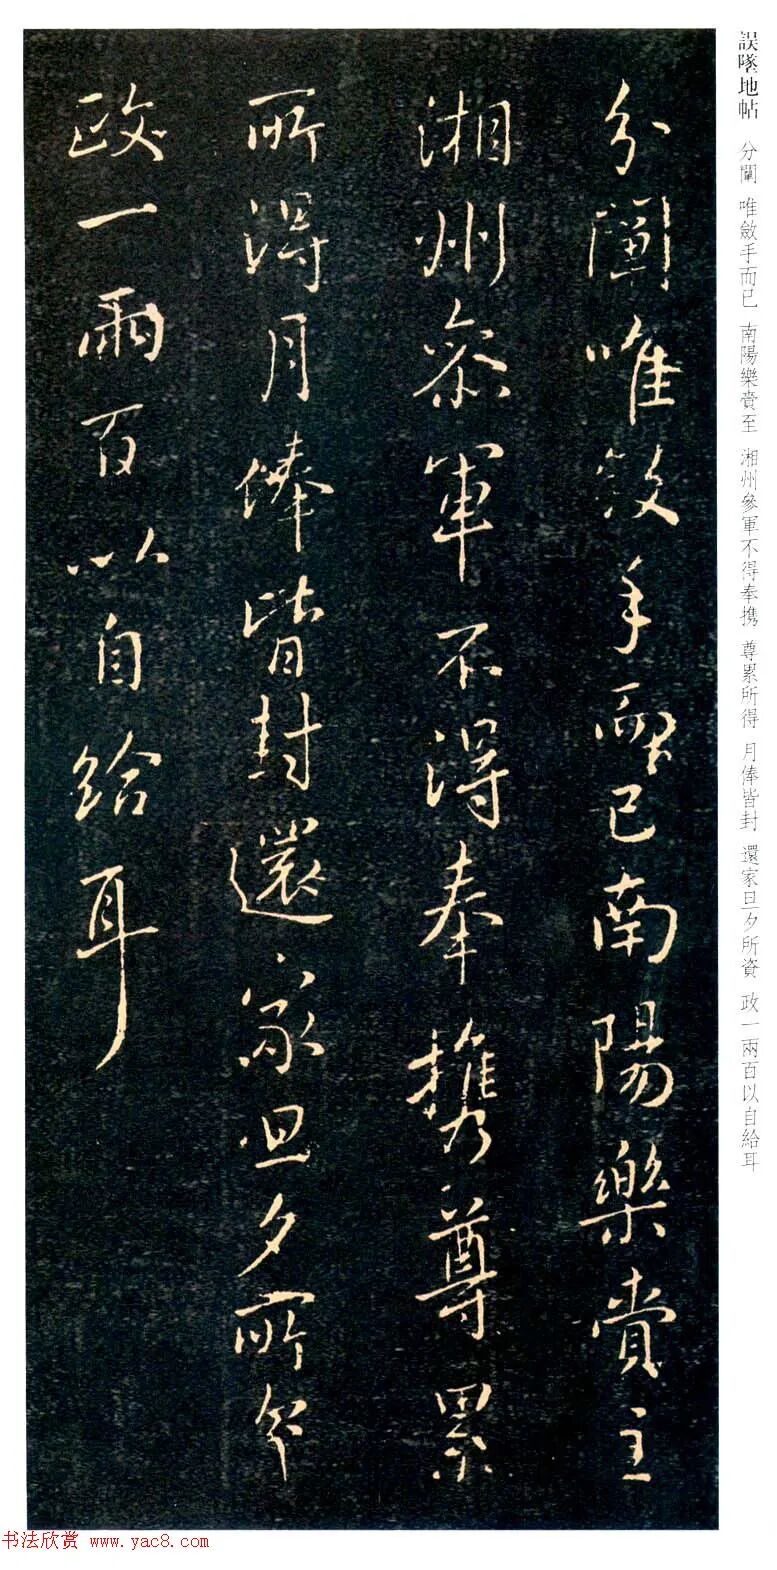 誤墜地帖 分闡 唯斂手而已 南陽樂賞至 湘州參軍不得奉携 尊累所得 月俸皆封 還家旦夕所資 政一兩百以自給耳
分闡唯斂手而已南陽樂賞主
湘州參軍不得奉携尊累
所得月俸皆封還家旦夕所
政一兩百以自給耳
书法欣赏 www.yac8.com